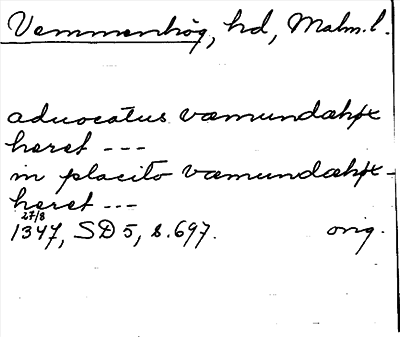 Vemmenhög, hd, Malm.l.
advocatus væmundæhøx
heret ---
in placito væmundæhøx-
heret ---
27/8
1347, SD 5, s.697. orig.